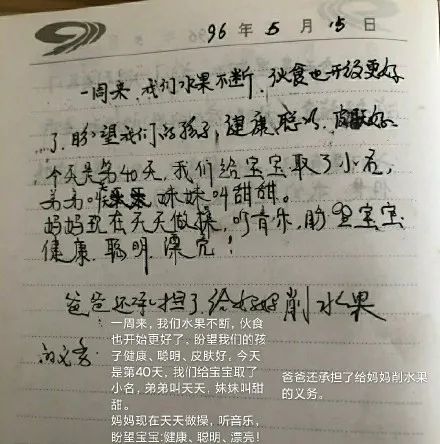 96年5月15日
一周来,我们水果不断,伙食也开始更好
了,盼望我们的孩子,健康聪明,皮肤好。
今天是第40天,我们给宝宝取了小名,
弟弟叫 妹妹叫甜甜。
妈妈现在天天做操,听音乐,盼望宝宝
健康、聪明、漂亮!
爸爸还承担了给妈妈削水果
的义务
一周来,我们水果不断,伙食
也开始更好了,盼望我们的孩
子健康、聪明、皮肤好,今天
是第40天,我们给宝宝取了
小名,弟弟叫天天,妹妹叫甜
甜。
妈妈现在天天做操,听音乐,
盼望宝宝:健康、聪明、漂亮!
爸爸还承担了给妈妈削水果
的义务。